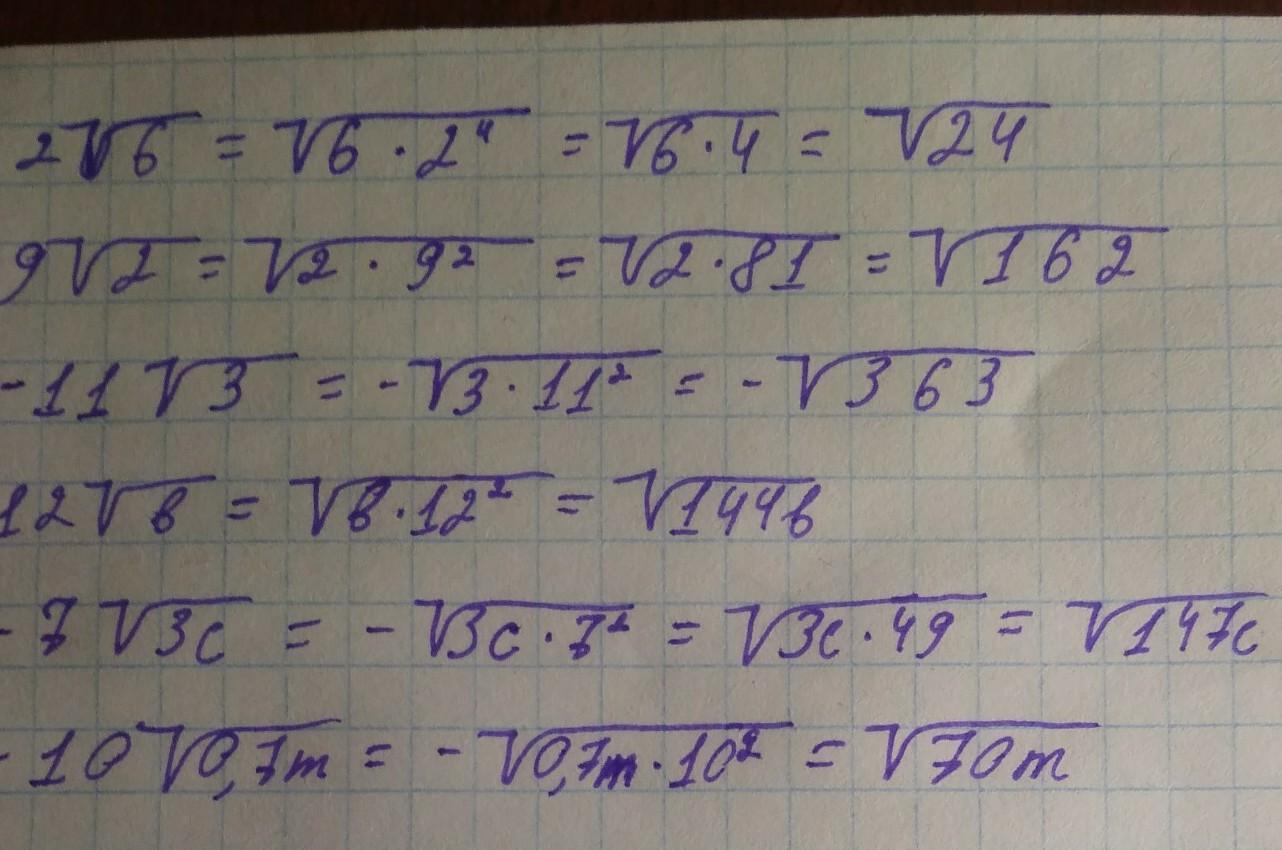 2√6 = √6·2⁴ = √6·4 = √24
9√2 = √2·9² = √2·81 = √162
-11√3 = -√3·11² = -√363
12√в = √в·12² = √144в
-7√3c = -√3c·7² = √3c·49 = √147c
-10√0,7m = -√0,7m·10² = √70m